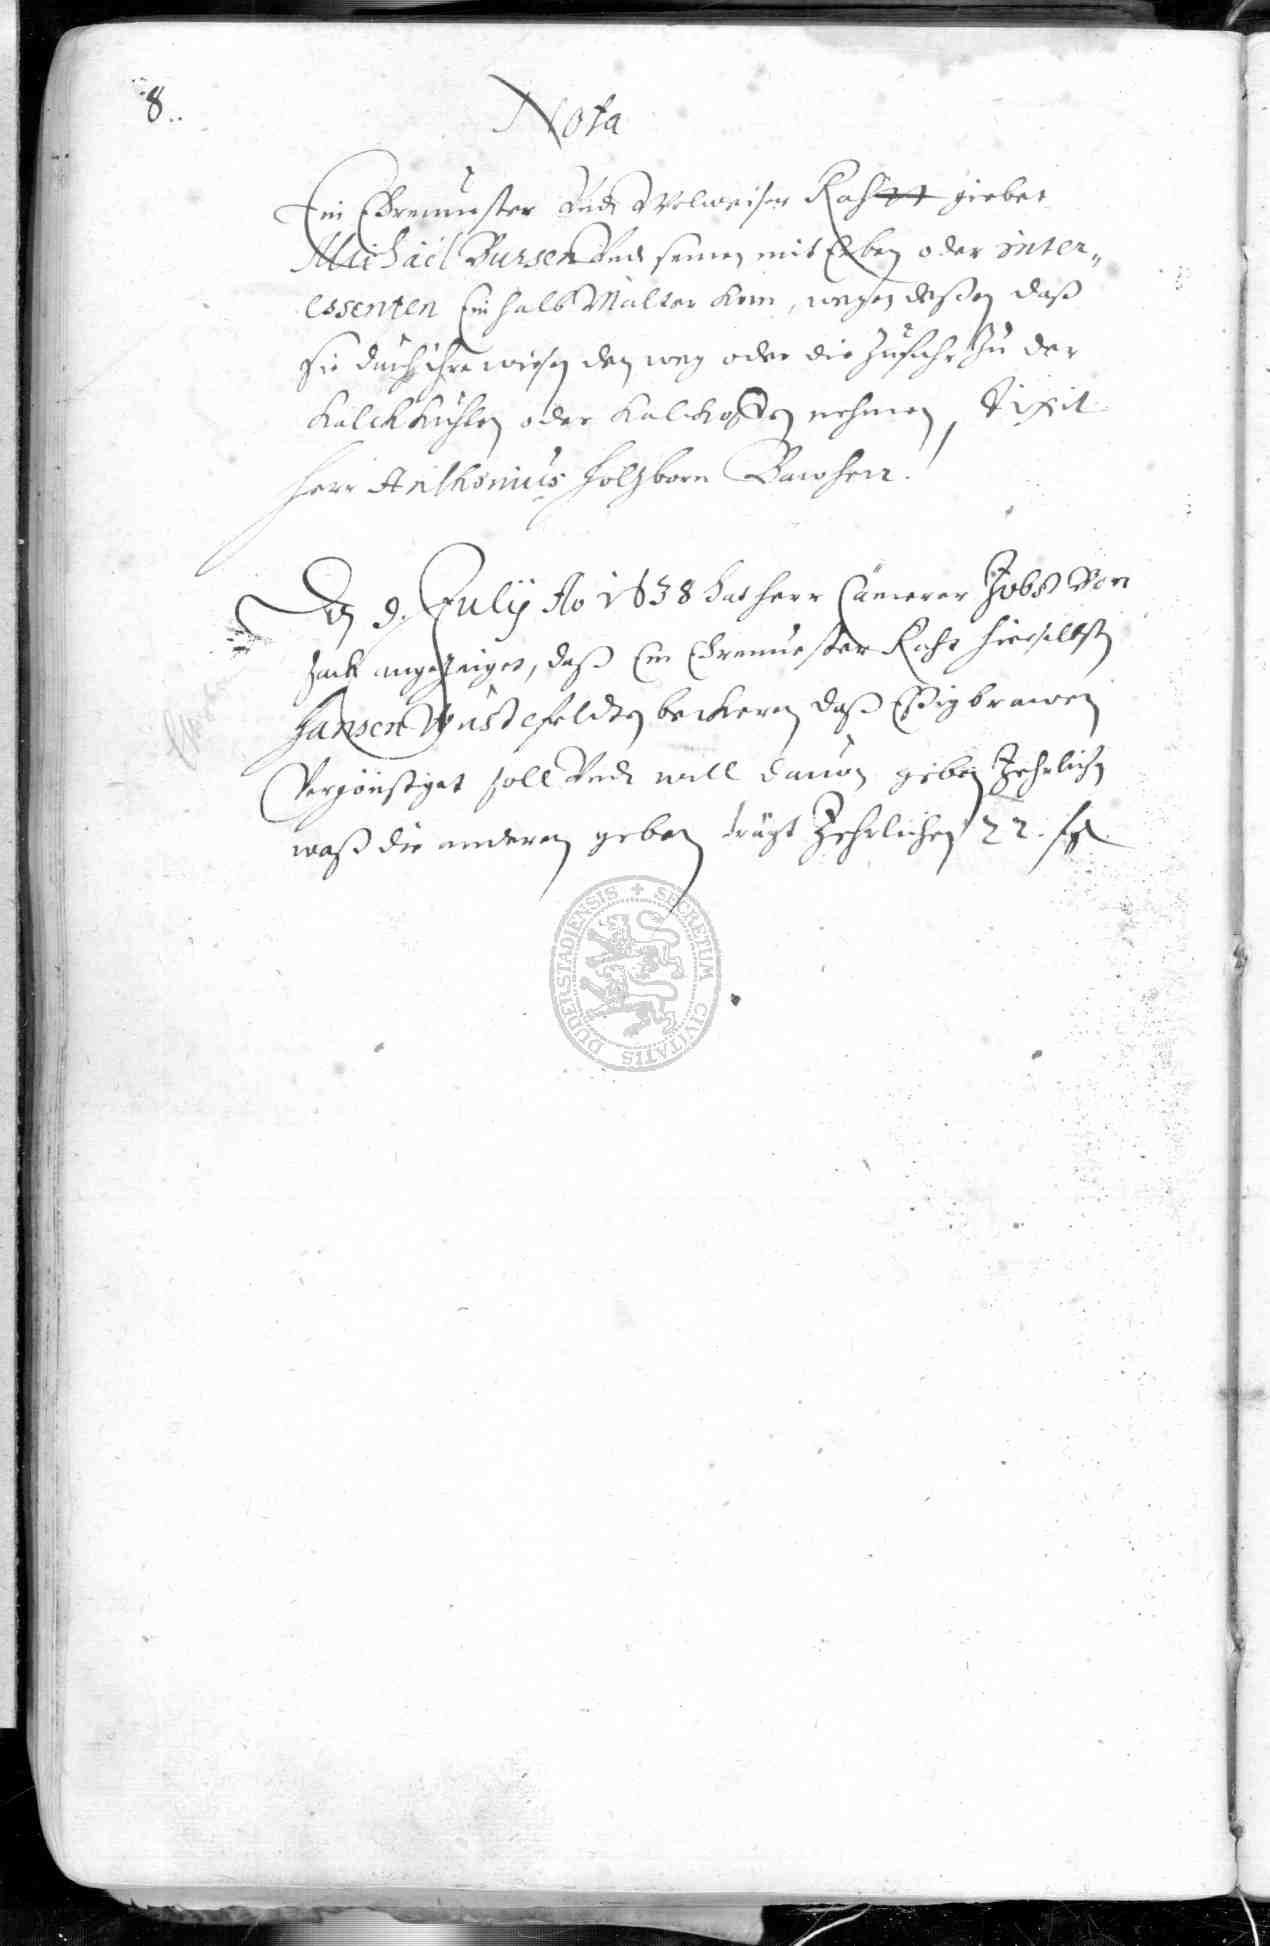 8.
Nota
Ein Ehrenuester Vnd Wolweiser Raht giebet
Michäel Bursen Vnd seinen mit Erben oder inter„
essenten Ein halb Malter Korn, wegen deßen daß
sie durch ihre wiesen den weg oder die Zufuhr Zu der
Kalckkuhlen oder Kalckrosen nehmen, dixit
Herr Anthonius Holtzborn Bawherr.
Den 9. Julij Ao 1638 hat herr Cämerer Jobst Von
Hack angezeiget, daß Ein Ehrenuester Raht hierselbst
Hansen Wüstefeldten beckeren daß Eßigbrawen
Vergönstiget soll Vnd will dauon geben Jehrlichen
waß die anderen geben trägt Jehrlichen 22. ßl.
DUDERSTADIENSIS + SECRETUM CIVITATIS